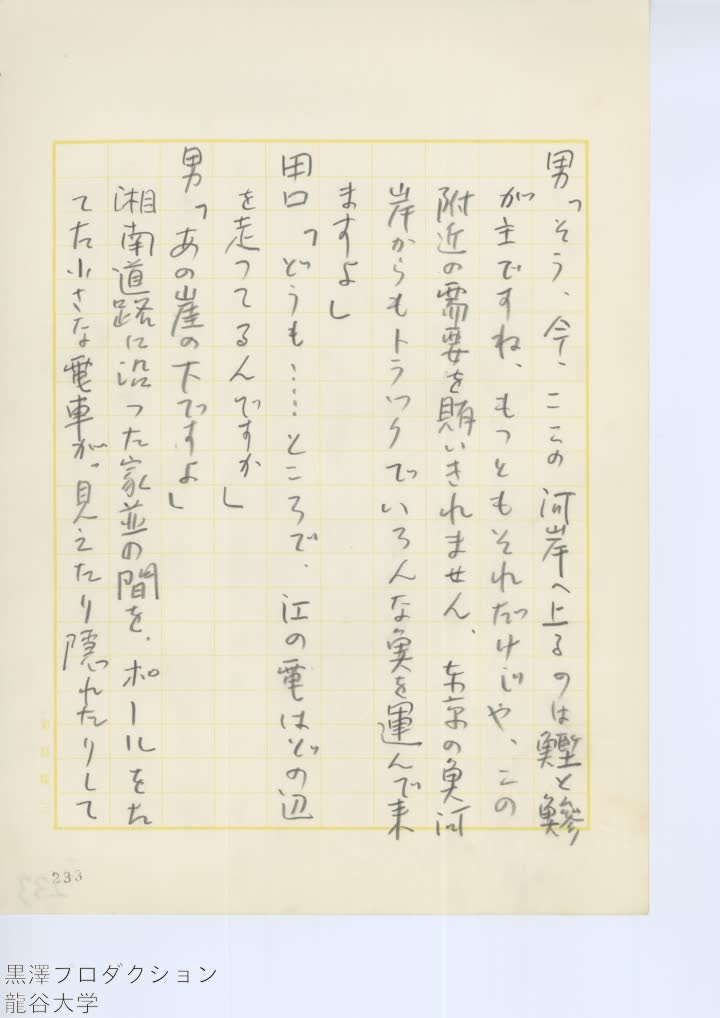 男「そう、今、ここの河岸へ上るのは鰹と鯵
が主ですね、もつともそれだけじや、この
附近の需要を賄いきれません、東京の魚河
岸からもトラックでいろんな魚を運んで来
ますよ」
田口「どうも……ところで、江の電はどの辺
を走つてるんですか」
男「あの崖の下ですよ」
湘南道路に沿つた家並の間を、ポールをた
てた小さな電車が、見えたり隠れたりして
233
黒澤プロダクション
龍谷大学